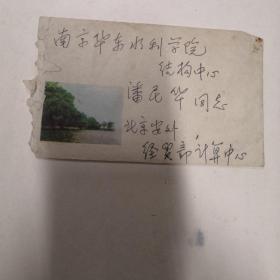 南京华东水利学院
结构中心
潘民华同志
北京安外,
经贸部计算中心